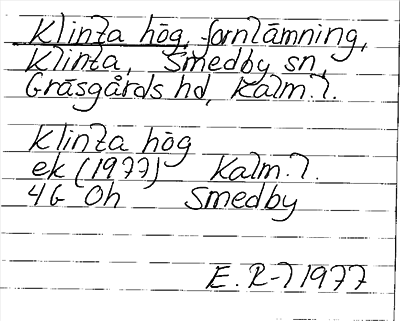 Klinta hög, fornlämning,
Klinta, Smedby sn,
Gräsgårds hd, Kalm. l.
Klinta hög
ek (1977) Kalm. l.
4G Oh Smedby
E. R-l 1977